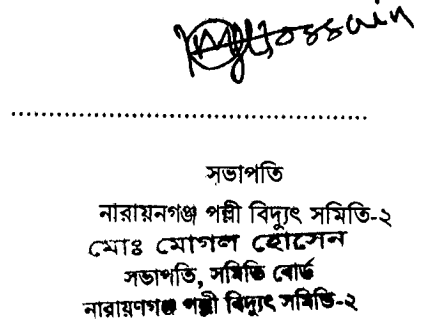 Hossain
সভাপতি
নারায়নগঞ্জ পল্লী বিদ্যুৎ সমিতি-২
মোঃ মোগল হোসেন
সভাপতি, সমিতি বোর্ড
নারায়ণগঞ্জ পল্লী বিদ্যুৎ সমিতি-২